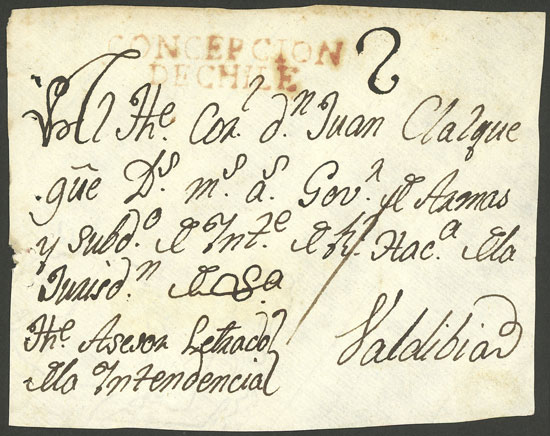 CONCEPCION
DE CHILE
2
Al The. Cor.l d.n Juan Clarque
güe D.s m.s a.s Gov.r de Armas
y Subd.o de Int.e de R.l Hac.a de la
Jurisd.n de
The. Asesor Letrado
de la Intendencia
Valdibia